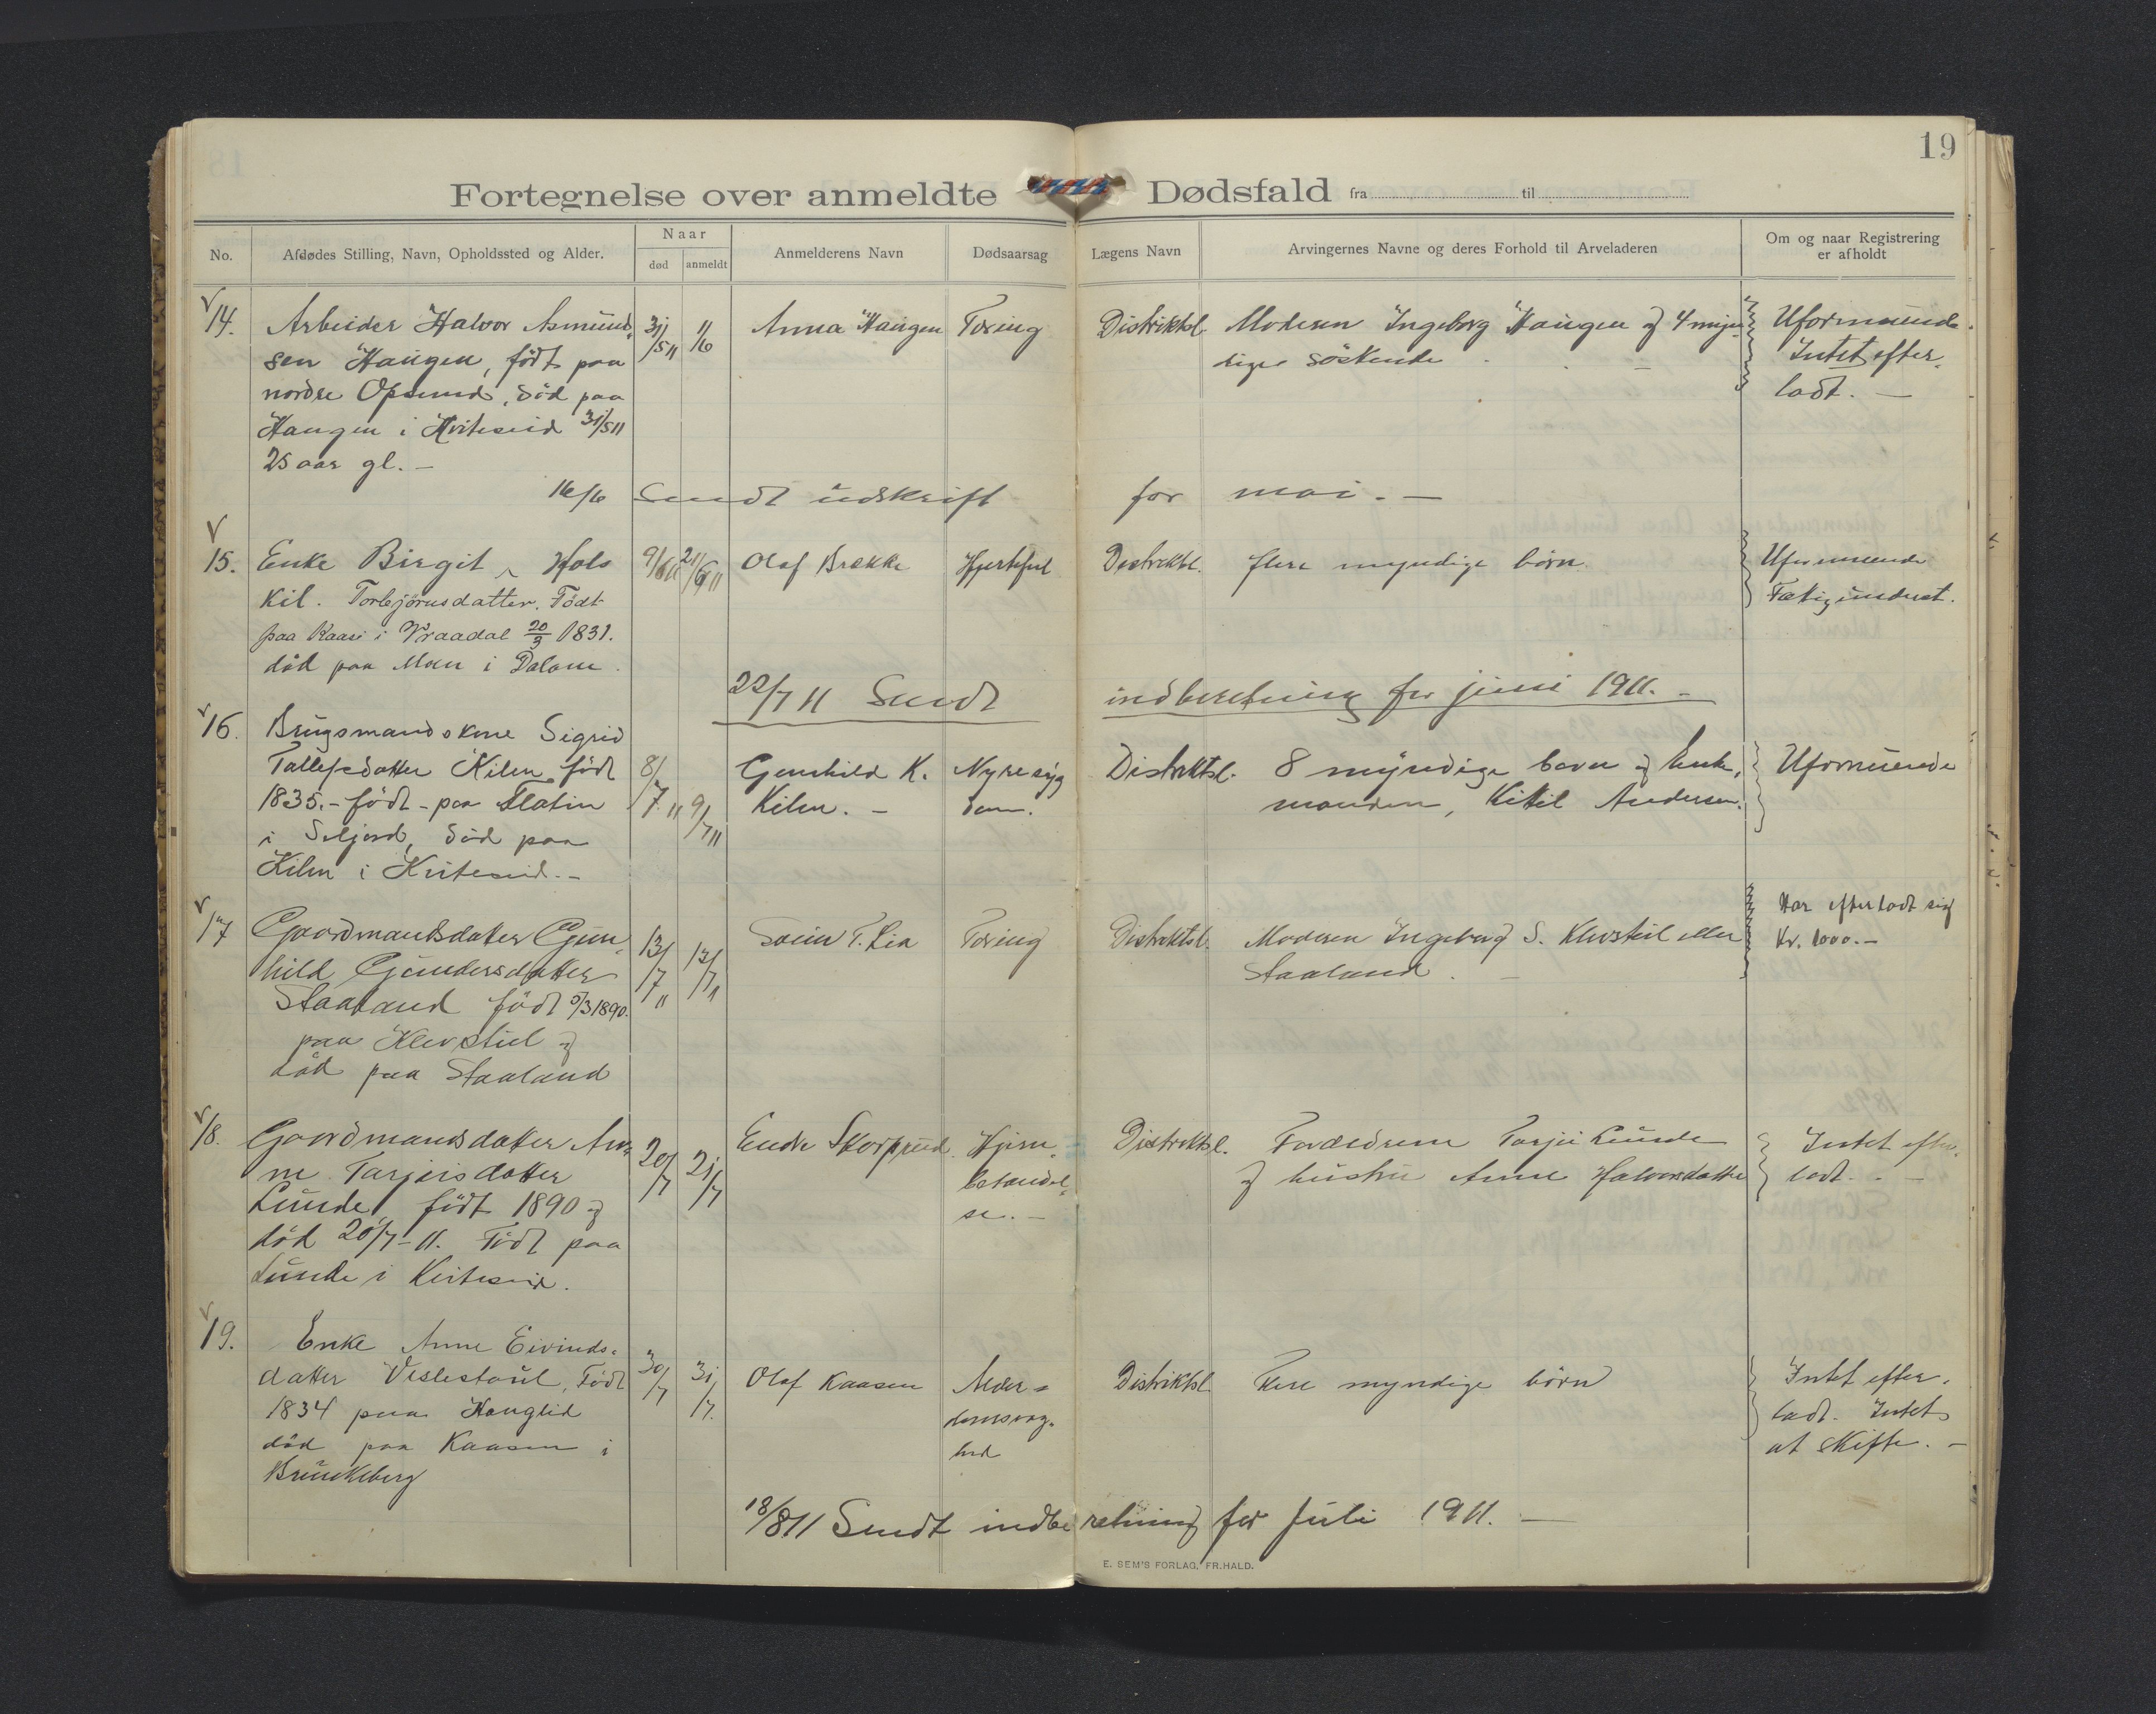 19
Fortegnelse over anmeldte Dødsfald fra til
No.
Afdødes Stilling, Navn, Opholdssted og Alder.
Naar
død anmeldt
Anmelderens Navn
Dødsaarsag
Lægens Navn
Arvingernes Navne og deres Forhold til Arveladeren
Om og naar Registrering
er afholdt
14. Arbeider Halvor Asmund-
sen Haugen, født paa
nordre Opsund, død paa
Haugen i Kviteseid 31/5 11
25 aar gl. –
31/5 11
1/6
Anna Haugen
Tæring
Distriktsl.
Moderen Ingeborg Haugen og 4 myn-
dige søskende
Uformuende.
Intet efter-
ladt. –
16/6 Sendt udskrift for mai. –
15. Enke Birgit Hols
kil. Torbjørnsdatter. Født
paa Kaasi i Vraadal 20/3 1831.
død paa Moen i Dalane.
9/6 11
21/6 11
Olaf Brække
Hjertefeil
Distriktsl.
flere myndige børn.
Uformuende
Fatigunderst.
22/7 11 Sendt indberetning for juni 1911. –
16. Brugsmandskone Sigrid
Tallefsdatter Kilen født
1835. – født – paa Slatin
i Seljord, død paa
Kilen i Kviteseid. –
8/7 11
9/7 11
Gunhild K.
Kilen. –
Nyresyg
dom.
Distriktsl.
8 myndige børn og Enke-
manden, Kittil Andersen.
Uformuende
17 Gaardmandsdatter Gun-
hild Gundersdatter
Staaland født 5/3 1890.
paa Klevstul og
død paa Staaland
13/7 11
13/7 11
T. Lia
Tæring
Distriktsl.
Moderen Ingeborg S. Klevstul eller
Staaland. –
Har efterladt sig
Kr. 1000. –
18. Gaardmandsdatter An-
ne Tarjeisdatter
Lunde, født 1890 og
død 20/7 – 11. Født paa
Lunde i Kviteseid.
20/7
21/7
Endre Skorpeud.
Hjerne-
betændel-
se. –
Distriktsl.
Forældrene Tarjei Lunde
og hustru Anne Halvorsdatter
Intet efter-
ladt. –
19. Enke Anne Eivinds-
datter Veslestaul, Født
1834 paa Hauglid
død paa Kaasen i
Brunkeberg
30/7
31/7.
Olaf Kaasen
Alder-
domssvag-
hed
Distriktsl.
Flere myndige børn
Intet efter-
ladt. Intet
at skifte. –
18/8 11 Sendt indberetning for Juli 1911. –
E. SEM'S FORLAG, FR.HALD.